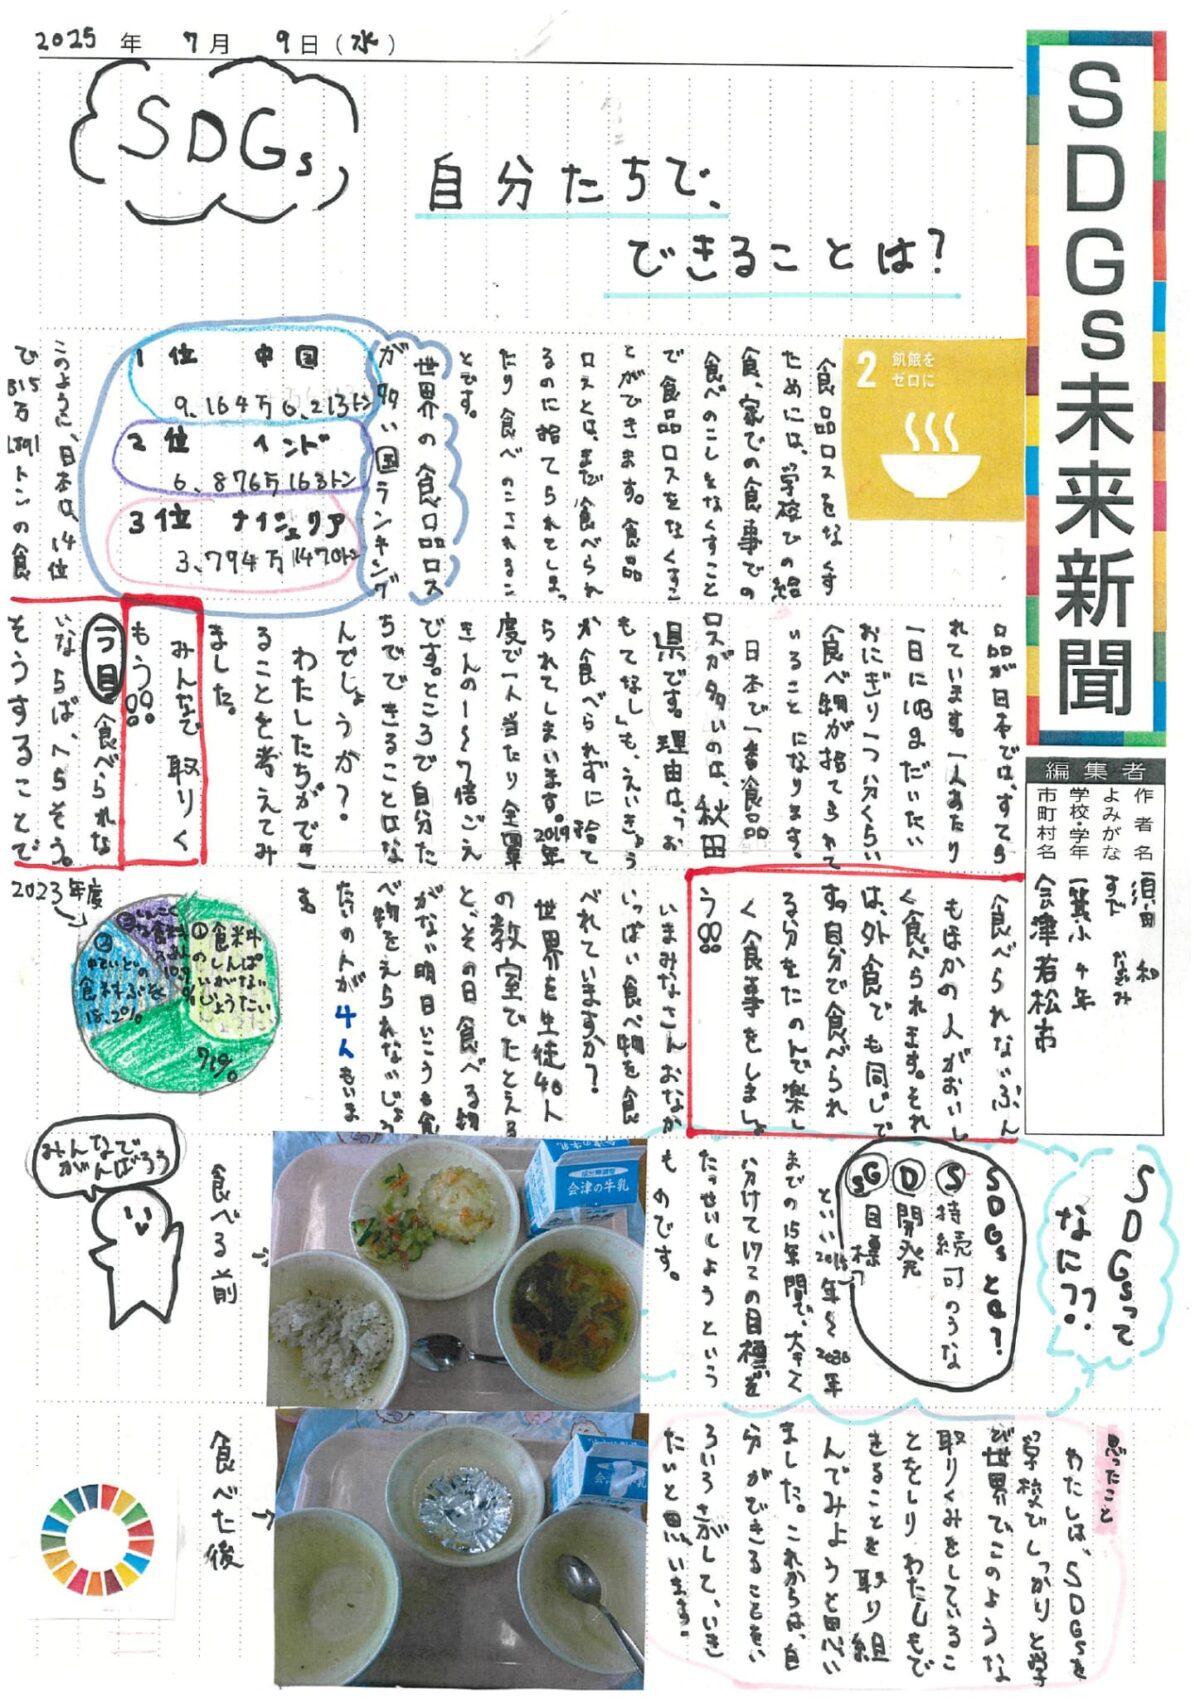 2025年 7月 9日(水)
SDGs未来新聞
SDGs
自分たちで、
できることは?
編集者
作者名 須田 和
よみがな すだ かずみ
学校・学年 一箕小 4年
市町村名 会津若松市
2 飢餓を
ゼロに
食品ロスをなくす
ためには、学校での給
食、家での食事での
食べのこしをなくすこと
で食品ロスをなくすこ
とができます。食品
ロスとは、まだ食べられ
るのに捨てられてしまっ
たり食べのこされるこ
とです。
世界の食品ロス
が多い国ランキング
1位 中国
9,164万6,213トン
2位 インド
6,876万163トン
3位 ナイジェリア
3,794万1470トン
このように、日本は、14位
で815万1891トンの食
品が日本では、すてら
れています。一人あたり
一日にはだいたい
おにぎり一つ分くらい
食べ物が捨てられて
いることになります。
日本で一番食品
ロスが多いのは、秋田
県です。理由は、「お
もてなし」も、えいきょう
か食べられずに捨て
られてしまいます。2019年
度で一人当たり全国平
きんの1〜7倍ごえ
です。ところで自分た
ちでできることはな
んでしょうか?
わたしたちができ
ることを考えてみ
ました。
みんなで取りく
もう
一つ目 食べられな
いならば、へらそう。
そうすることで
食べられないぶん
もほかの人がおいし
く食べられます。それ
は、外食でも同じで
す。自分で食べられ
る分をたのんで楽し
く食事をしましょ
う
いまみなさんおなか
いっぱい食べ物を食
べれていますか?
世界を生徒40人
の教室でたとえる
と、その日食べる物
がない明日いこうも食
べ物をえられないじょう
たいの人が4人もいま
す
2023年度
①食料
のしんぱ
いがない
じょうたい
71%
②中ていどの
食料ふそく
18.2%
10.7%
SDGsって
なに??
SDGsとは?
Ⓢ持続可のうな
Ⓓ開発
Ⓖs目標
といい2016年〜2030年
までの15年間で、大きく
分けて17の目標を
たっせいしようという
ものです。
食べる前
みんなで
がんばろう
会津の牛乳
思ったこと
わたしは、SDGsを
学校でしっかりと学
び世界でこのような
取りくみをしているこ
とをしりわたしもで
きることを取り組
んでみようと思い
ました。これからは、自
分ができることをい
ろいろさがして、いき
たいと思います。
食べた後
会津の牛乳